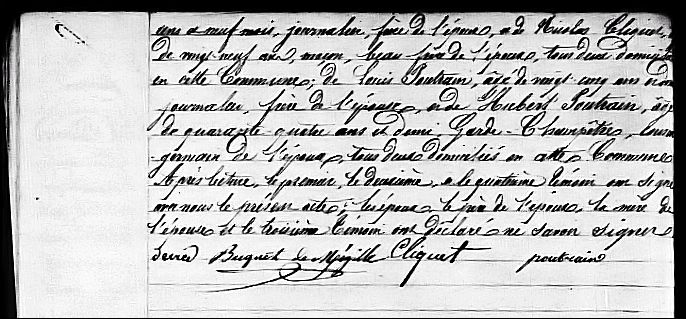 ans et neuf mois, journalier, frère de l'époux, et de Nicolas Cliquet,
de vingt neuf ans, maçon, beau frère de l'époux, tous deux domiciliés
en cette Commune; de Louis Poutrain, âgé de vingt cinq ans et demi
journalier, frère de l'épouse, et de Hubert Poutrain, âgé
de quarante quatre ans et demi, Garde-Champêtre, cousin
germain de l'épouse, tous deux domiciliés en cette Commune
Après lecture, le premier, le deuxième, et le quatrième témoin ont signé
avec nous le présent acte; les époux, le père de l'époux, la mère de
l'épouse et le troisième témoin ont déclaré ne savoir signer
Buquet de Cliquet poutrain